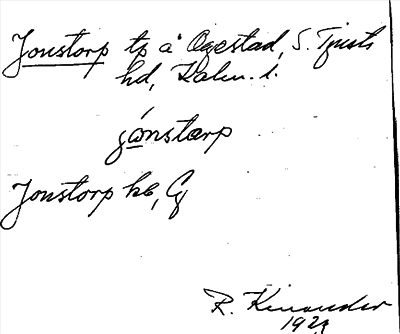 Jonstorp tp å Ogestad, S. Tjusts
hd, Kalm. l.
jònstɷrp
Jonstorp hb, G
R. Kinander
192